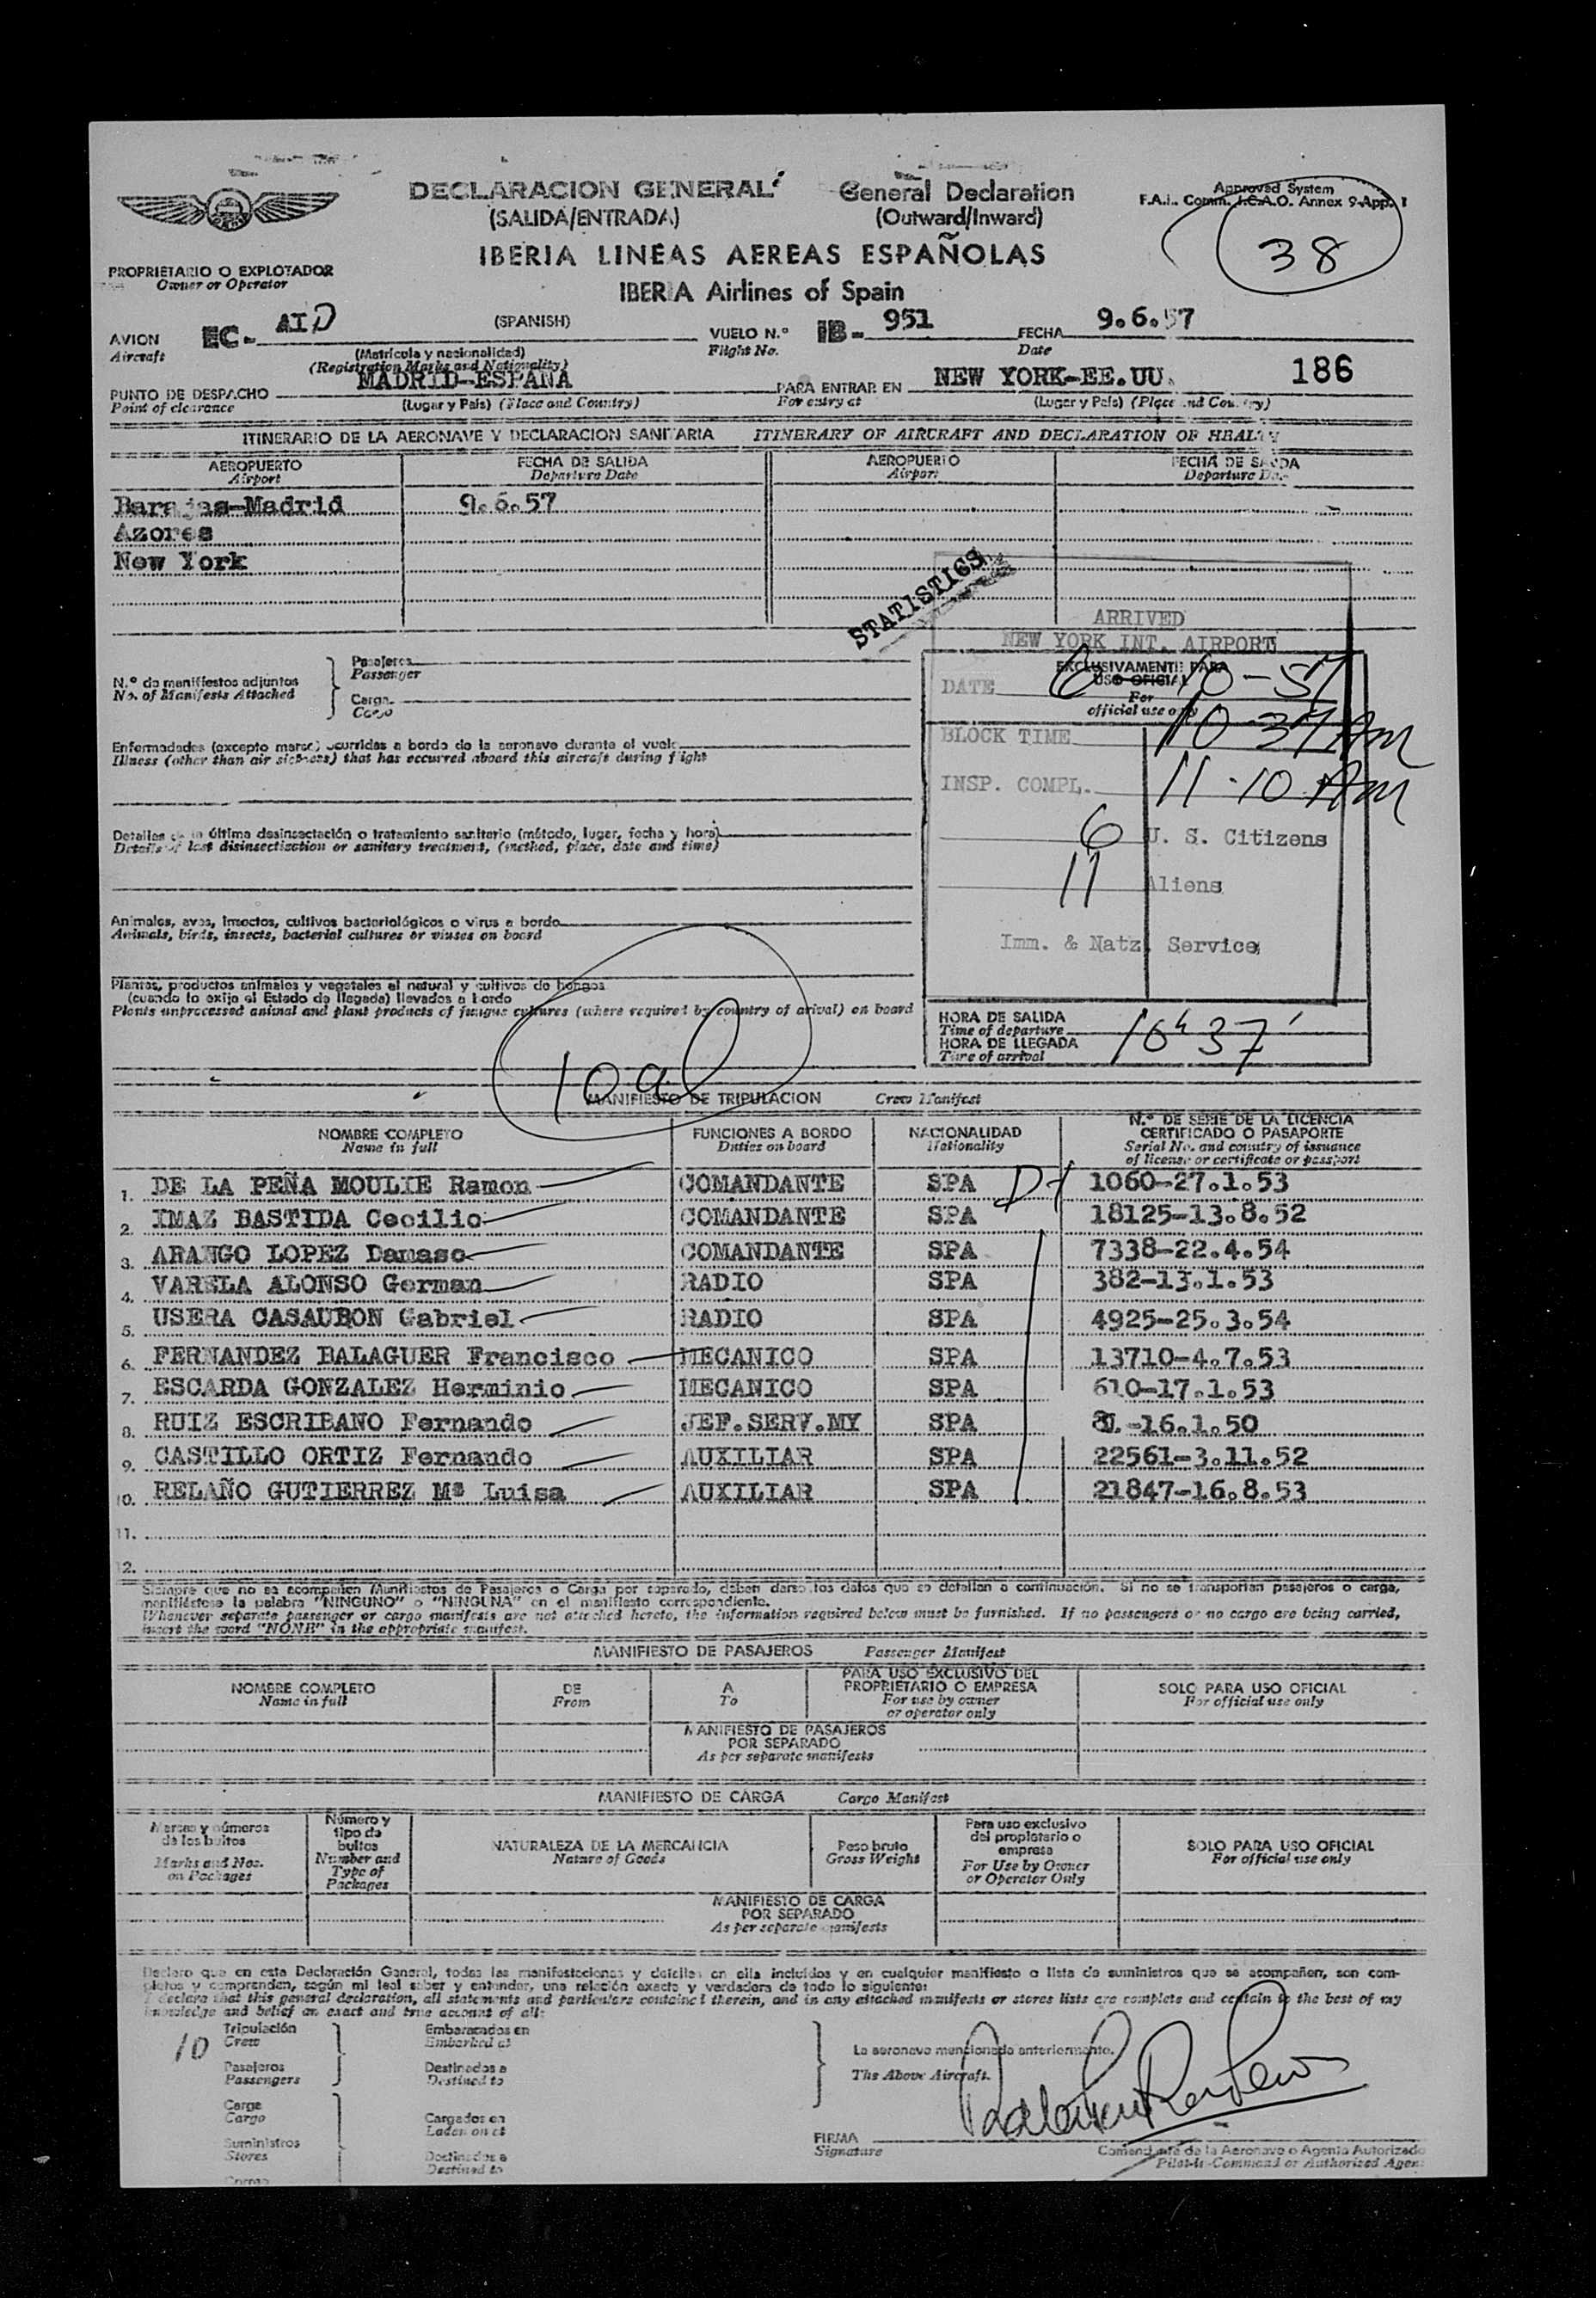 DECLARACION GENERAL General Declaration
(SALIDA/ENTRADA) (Outward/Inward)
Approved System
F.A.I. Comm. I.C.A.O. Annex 9-App. 1
38
IBERIA LINEAS AEREAS ESPAÑOLAS
IBERIA Airlines of Spain
PROPRIETARIO O EXPLOTADOR
Owner or Operator
AVION EC- AID (SPANISH) VUELO N.º IB- 951 FECHA 9.6.57
Aircraft (Matrícula y nacionalidad) Flight No. Date
(Registration Marks and Nationality)
186
PUNTO DE DESPACHO MADRID-ESPAÑA PARA ENTRAR EN NEW YORK-EE.UU.
Point of clearance (Lugar y País) (Place and Country) For entry at (Lugar y País) (Place and Country)
ITINERARIO DE LA AERONAVE Y DECLARACION SANITARIA ITINERARY OF AIRCRAFT AND DECLARATION OF HEALTH
AEROPUERTO FECHA DE SALIDA AEROPUERTO FECHA DE SALIDA
Airport Departure Date Airport Departure Date
Barajas-Madrid 9.6.57
Azores
New York
STATISTICS
ARRIVED
NEW YORK INT. AIRPORT
EXCLUSIVAMENTE PARA
USO OFICIAL
For
official use only
DATE 6-10-57
BLOCK TIME 10-37 Am
INSP. COMPL. 11-10 Am
6 U. S. Citizens
11 Aliens
Imm. & Natz. Service
HORA DE SALIDA
Time of departure
HORA DE LLEGADA
Time of arrival
16h 37'
N.º de manifiestos adjuntos
No. of Manifests Attached
Pasajeros
Passenger
Carga
Cargo
Enfermedades (excepto mareo) ocurridas a bordo de la aeronave durante el vuelo
Illness (other than air sickness) that has occurred aboard this aircraft during flight
Detalles de la última desinsectación o tratamiento sanitario (método, lugar, fecha y hora)
Details of last disinsectization or sanitary treatment, (method, place, date and time)
Animales, aves, insectos, cultivos bacteriológicos o virus a bordo
Animals, birds, insects, bacterial cultures or viuses on board
Plantas, productos animales y vegetales al natural y cultivos de hongos
(cuando lo exija el Estado de llegada) llevados a bordo
Plants unprocessed animal and plant products of fungus cultures (where required by country of arival) on board
MANIFIESTO DE TRIPULACION Crew Manifest
NOMBRE COMPLETO FUNCIONES A BORDO NACIONALIDAD N.º DE SERIE DE LA LICENCIA
CERTIFICADO O PASAPORTE
Name in full Duties on board Nationality Serial No. and country of issuance
of license or certificate or passport
1. DE LA PEÑA MOULIE Ramon COMANDANTE SPA 1060-27.1.53
2. IMAZ BASTIDA Cecilio COMANDANTE SPA 18125-13.8.52
3. ARANGO LOPEZ Damaso COMANDANTE SPA 7338-22.4.54
4. VARELA ALONSO German RADIO SPA 382-13.1.53
5. USERA CASAUBON Gabriel RADIO SPA 4925-25.3.54
6. FERNANDEZ BALAGUER Francisco MECANICO SPA 13710-4.7.53
7. ESCARDA GONZALEZ Herminio MECANICO SPA 610-17.1.53
8. RUIZ ESCRIBANO Fernando JEF.SERV.MY SPA -16.1.50
9. CASTILLO ORTIZ Fernando AUXILIAR SPA 22561-3.11.52
10. RELAÑO GUTIERREZ Mª Luisa AUXILIAR SPA 21847-16.8.53
11.
12.
Siempre que no se acompañen Manifiestos de Pasajeros o Carga por separado, deben darse los datos que se detallan a continuación. Si no se transportan pasajeros o carga,
manifiéstese la palabra "NINGUNO" o "NINGUNA" en el manifiesto correspondiente.
Whenever separate passenger or cargo manifests are not attached hereto, the information required below must be furnished. If no passengers or no cargo are being carried,
insert the word "NONE" in the appropriate manifest.
MANIFIESTO DE PASAJEROS Passenger Manifest
NOMBRE COMPLETO DE A PARA USO EXCLUSIVO DEL
PROPRIETARIO O EMPRESA SOLO PARA USO OFICIAL
Name in full From To For use by owner
or operator only For official use only
MANIFIESTO DE PASAJEROS
POR SEPARADO
As per separate manifests
MANIFIESTO DE CARGA Cargo Manifest
Marcas y números
de los bultos
Marks and Nos.
on Packages
Número y
tipo de
bultos
Number and
Type of
Packages
NATURALEZA DE LA MERCANCIA
Nature of Goods
Peso bruto
Gross Weight
Para uso exclusivo
del propietario o
empresa
For Use by Owner
or Operator Only
SOLO PARA USO OFICIAL
For official use only
MANIFIESTO DE CARGA
POR SEPARADO
As per separate manifests
Declaro que en esta Declaración General, todas las manifestaciones y detalles en ella incluidos y en cualquier manifiesto o lista de suministros que se acompañen, son com-
pletos y comprenden, según mi leal saber y entender, una relación exacta y verdadera de todo lo siguiente:
I declare that this general declaration, all statements and particulars contained therein, and in any attached manifests or stores lists are complete and contain to the best of my
knowledge and belief an exact and true account of all:
10 Tripulación
Crew
Pasajeros
Passengers
Embarcados en
Embarked at
Destinados a
Destined to
La aeronave mencionada anteriormente.
The Above Aircraft.
Carga
Cargo
Suministros
Stores
Correo
Cargados en
Laden on at
Destinados a
Destined to
FIRMA
Signature
Comandante de la Aeronave o Agente Autorizado
Pilot-in-Command or Authorized Agent